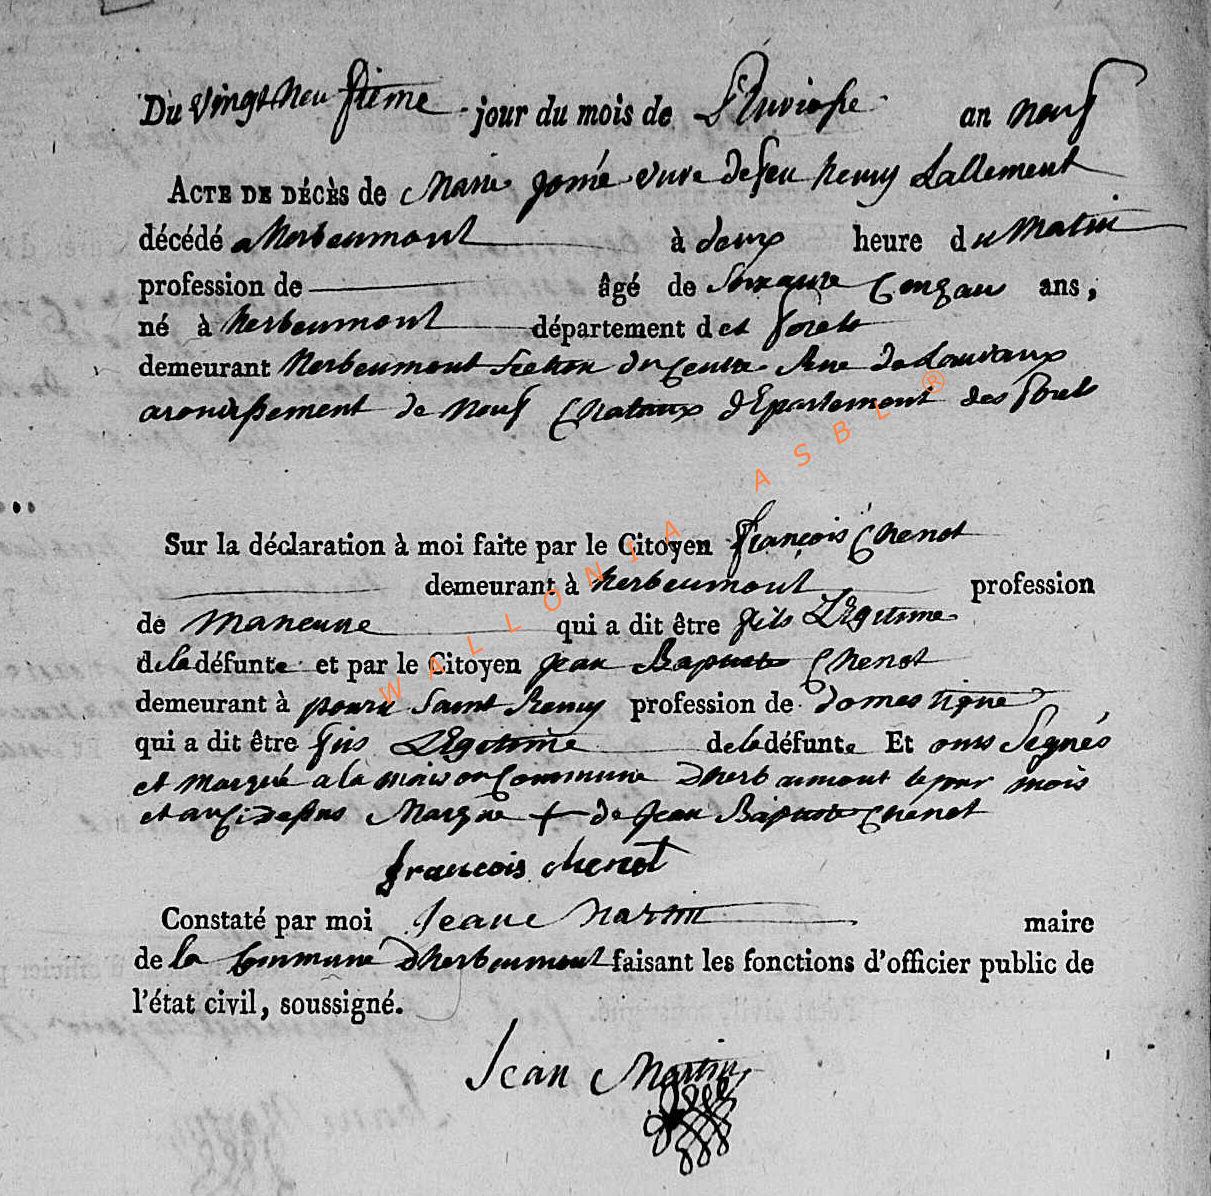 Du Vingt neu fiême jour du mois de Pluviose an neuf
ACTE DE DÉCÈS de Marie Jomé vuve de feu henry Lallement
décédé a herbeumont à deux heure du Matin
profession de âgé de Soixante ans,
né à herbeumont département det forets
demeurant herbeumont Section du Centre Rue de Lauvaux
arondissement de Neuf Chataux dEpartement des forets
Sur la déclaration à moi faite par le Citoyen françois Chenot
demeurant à herbeumont profession
de Maneuvre qui a dit être fils LEgitime
de la défunte et par le Citoyen Jean Baptiste Chenot
demeurant à pouru Saint Remy profession de domestique
qui a dit être fis LEgitime de la défunte Et onts Segnés
et Marqué a la maison Commune dherbeumont le jour mois
et an Cidessus Marque + de Jean Baptiste Chenot
francois chenot
Constaté par moi Jean Martin maire
de la Commune dherbeumont faisant les fonctions d'officier public de
l'état civil, soussigné.
Jean Martin
WALLONIA ASBL ®